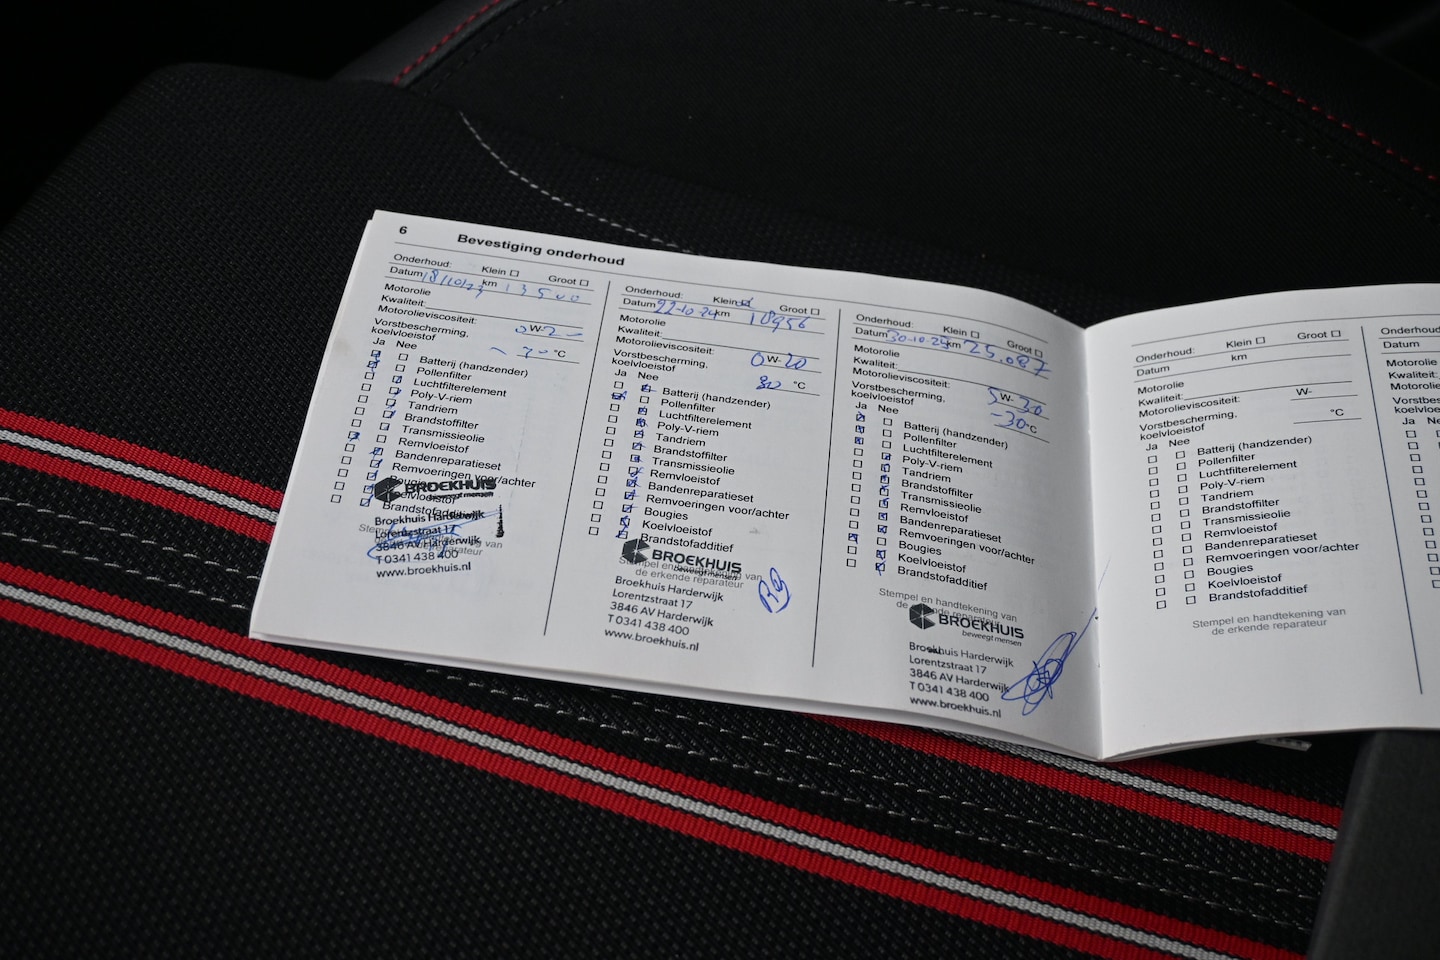 6 Bevestiging onderhoud
Onderhoud: Klein Groot
Datum 18/10/23 km 13500
Motorolie
Kwaliteit:
Motorolieviscositeit: 0 W- 20
Vorstbescherming,
koelvloeistof °C
Ja Nee
Batterij (handzender)
Pollenfilter
Luchtfilterelement
Poly-V-riem
Tandriem
Brandstoffilter
Transmissieolie
Remvloeistof
Bandenreparatieset
Remvoeringen voor/achter
Bougies
Koelvloeistof
Brandstofadditief
BROEKHUIS
beweegt mensen
Broekhuis Harderwijk
Lorentzstraat 17
3846 AV Harderwijk
T 0341 438 400
www.broekhuis.nl
Onderhoud: Klein Groot
Datum 22-10-24 km 18956
Motorolie
Kwaliteit:
Motorolieviscositeit: 0 W- 20
Vorstbescherming,
koelvloeistof 30 °C
Ja Nee
Batterij (handzender)
Pollenfilter
Luchtfilterelement
Poly-V-riem
Tandriem
Brandstoffilter
Transmissieolie
Remvloeistof
Bandenreparatieset
Remvoeringen voor/achter
Bougies
Koelvloeistof
Brandstofadditief
BROEKHUIS
beweegt mensen
Stempel en handtekening van
de erkende reparateur
Broekhuis Harderwijk
Lorentzstraat 17
3846 AV Harderwijk
T 0341 438 400
www.broekhuis.nl
Onderhoud: Klein Groot
Datum 30-10-25 km 25.087
Motorolie
Kwaliteit:
Motorolieviscositeit: 5 W- 30
Vorstbescherming,
koelvloeistof -30 °C
Ja Nee
Batterij (handzender)
Pollenfilter
Luchtfilterelement
Poly-V-riem
Tandriem
Brandstoffilter
Transmissieolie
Remvloeistof
Bandenreparatieset
Remvoeringen voor/achter
Bougies
Koelvloeistof
Brandstofadditief
Stempel en handtekening van
de erkende reparateur
BROEKHUIS
beweegt mensen
Broekhuis Harderwijk
Lorentzstraat 17
3846 AV Harderwijk
T 0341 438 400
www.broekhuis.nl
Onderhoud: Klein Groot
Datum km
Motorolie
Kwaliteit:
Motorolieviscositeit: W-
Vorstbescherming,
koelvloeistof °C
Ja Nee
Batterij (handzender)
Pollenfilter
Luchtfilterelement
Poly-V-riem
Tandriem
Brandstoffilter
Transmissieolie
Remvloeistof
Bandenreparatieset
Remvoeringen voor/achter
Bougies
Koelvloeistof
Brandstofadditief
Stempel en handtekening van
de erkende reparateur
Datum
Motorolie
Kwaliteit:
Ja